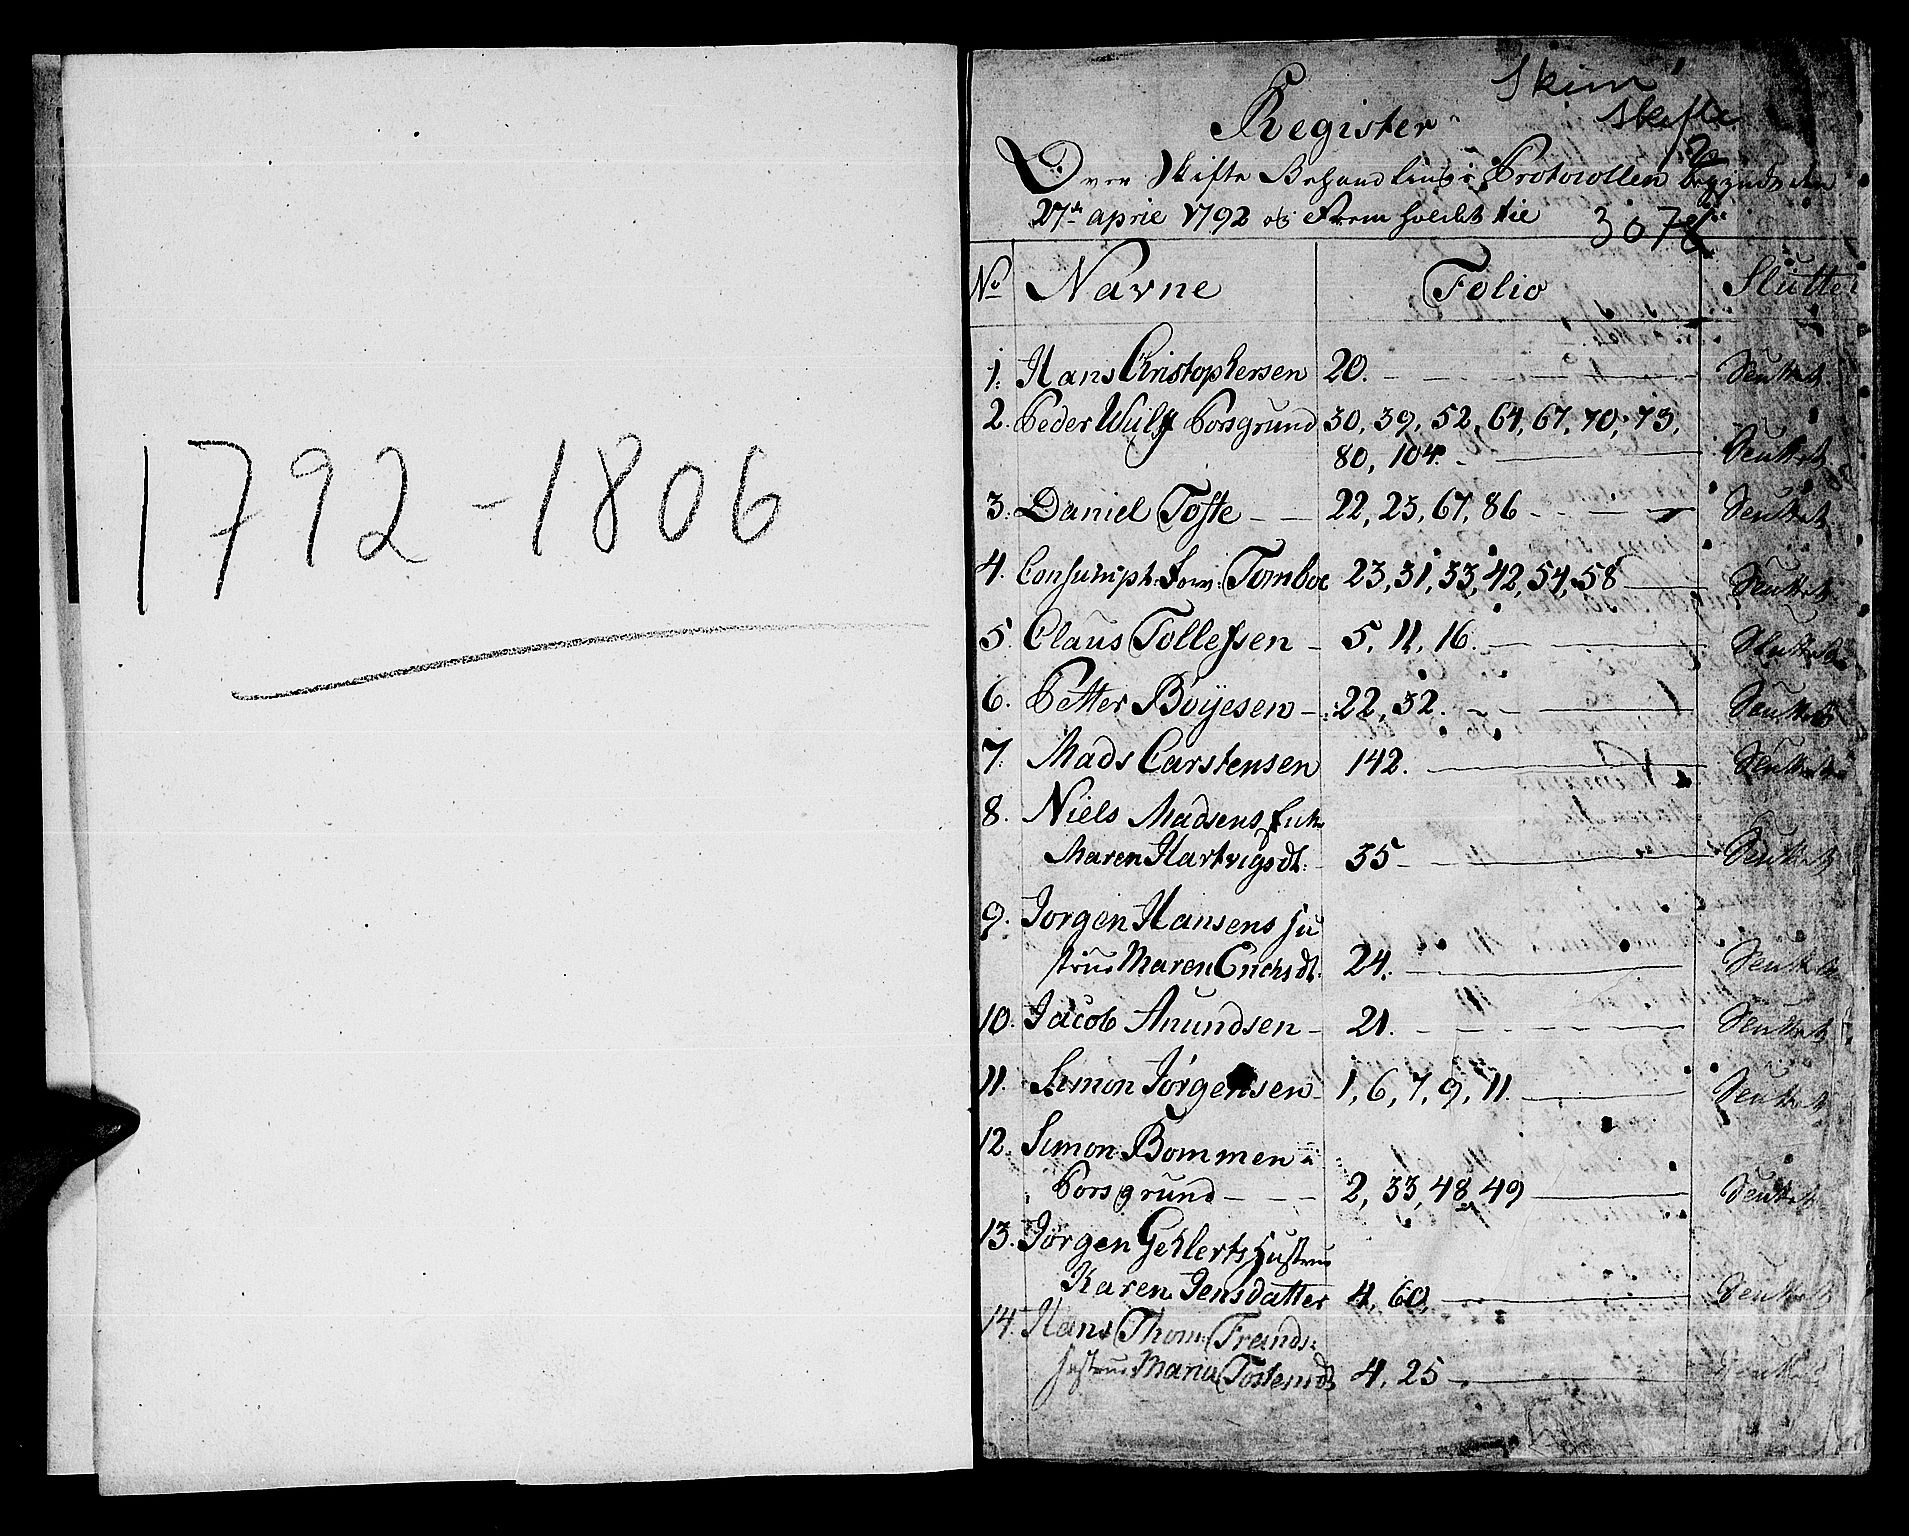 1792-1806
Skien
Skifte
2
Register
Over Skifte Behandling i Protocollen begyndt den
27de april 1792 og fremholdet til
3078
No Navne Folio Sluttet
1. Hans Christophersen 20. Sluttet
2. Peder Wulf Porsgrund 30, 39, 52, 64, 67, 70, 73,
80, 104. Sluttet
3. Daniel Tofte 22, 25, 67, 86 Sluttet
4. Consumpt. Forv. Tomboe 23, 31, 33, 42, 54, 58 Sluttet
5. Claus Tollefsen 5, 11, 16. Sluttet
6. Petter Böyesen 22, 32. Sluttet
7. Mads Carstensen 142. Sluttet
8. Niels Madsens Enke
Maren Hartvigsdt. 35 Sluttet
9. Jörgen Hansens Hu
strue Maren Erichsdt. 24. Sluttet
10. Jacob Anundsen 21. Sluttet
11. Simon Jörgensen 1, 6, 7, 9, 11. Sluttet
12. Simon Bommen i
Porsgrund 2, 33, 48, 49 Sluttet
13. Jörgen Gehlerts Hustrue
Karen Jensdatter 4, 60, Sluttet
14. Hans Thom. Frands.
Hustrue Maria Tostensdt 4, 25 Sluttet